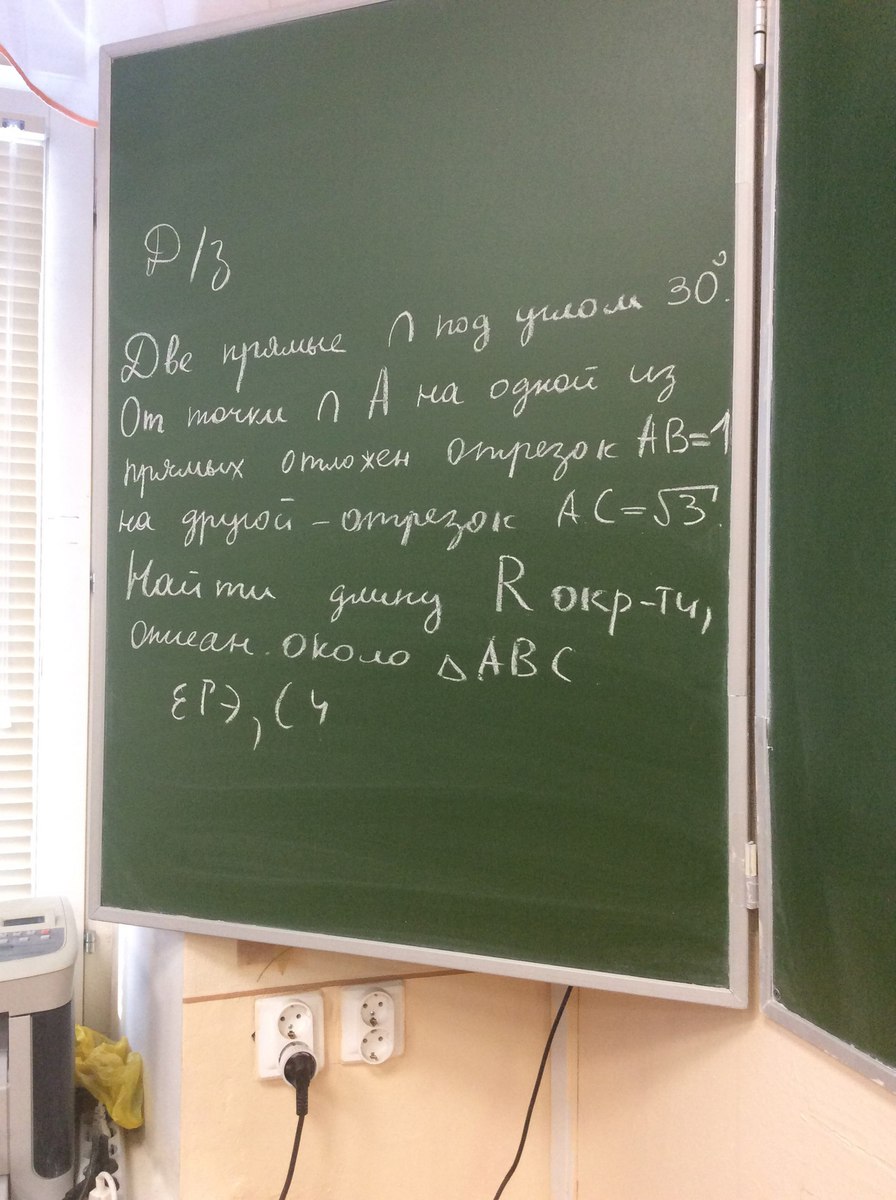 Д/з
Две прямые ∩ под углом 30°.
От точки ∩ А на одной из
прямых отложен отрезок АВ=1
на другой – отрезок АС=√3.
Найти длину R окр-ти,
описан. около △АВС
ЕГЭ, С4